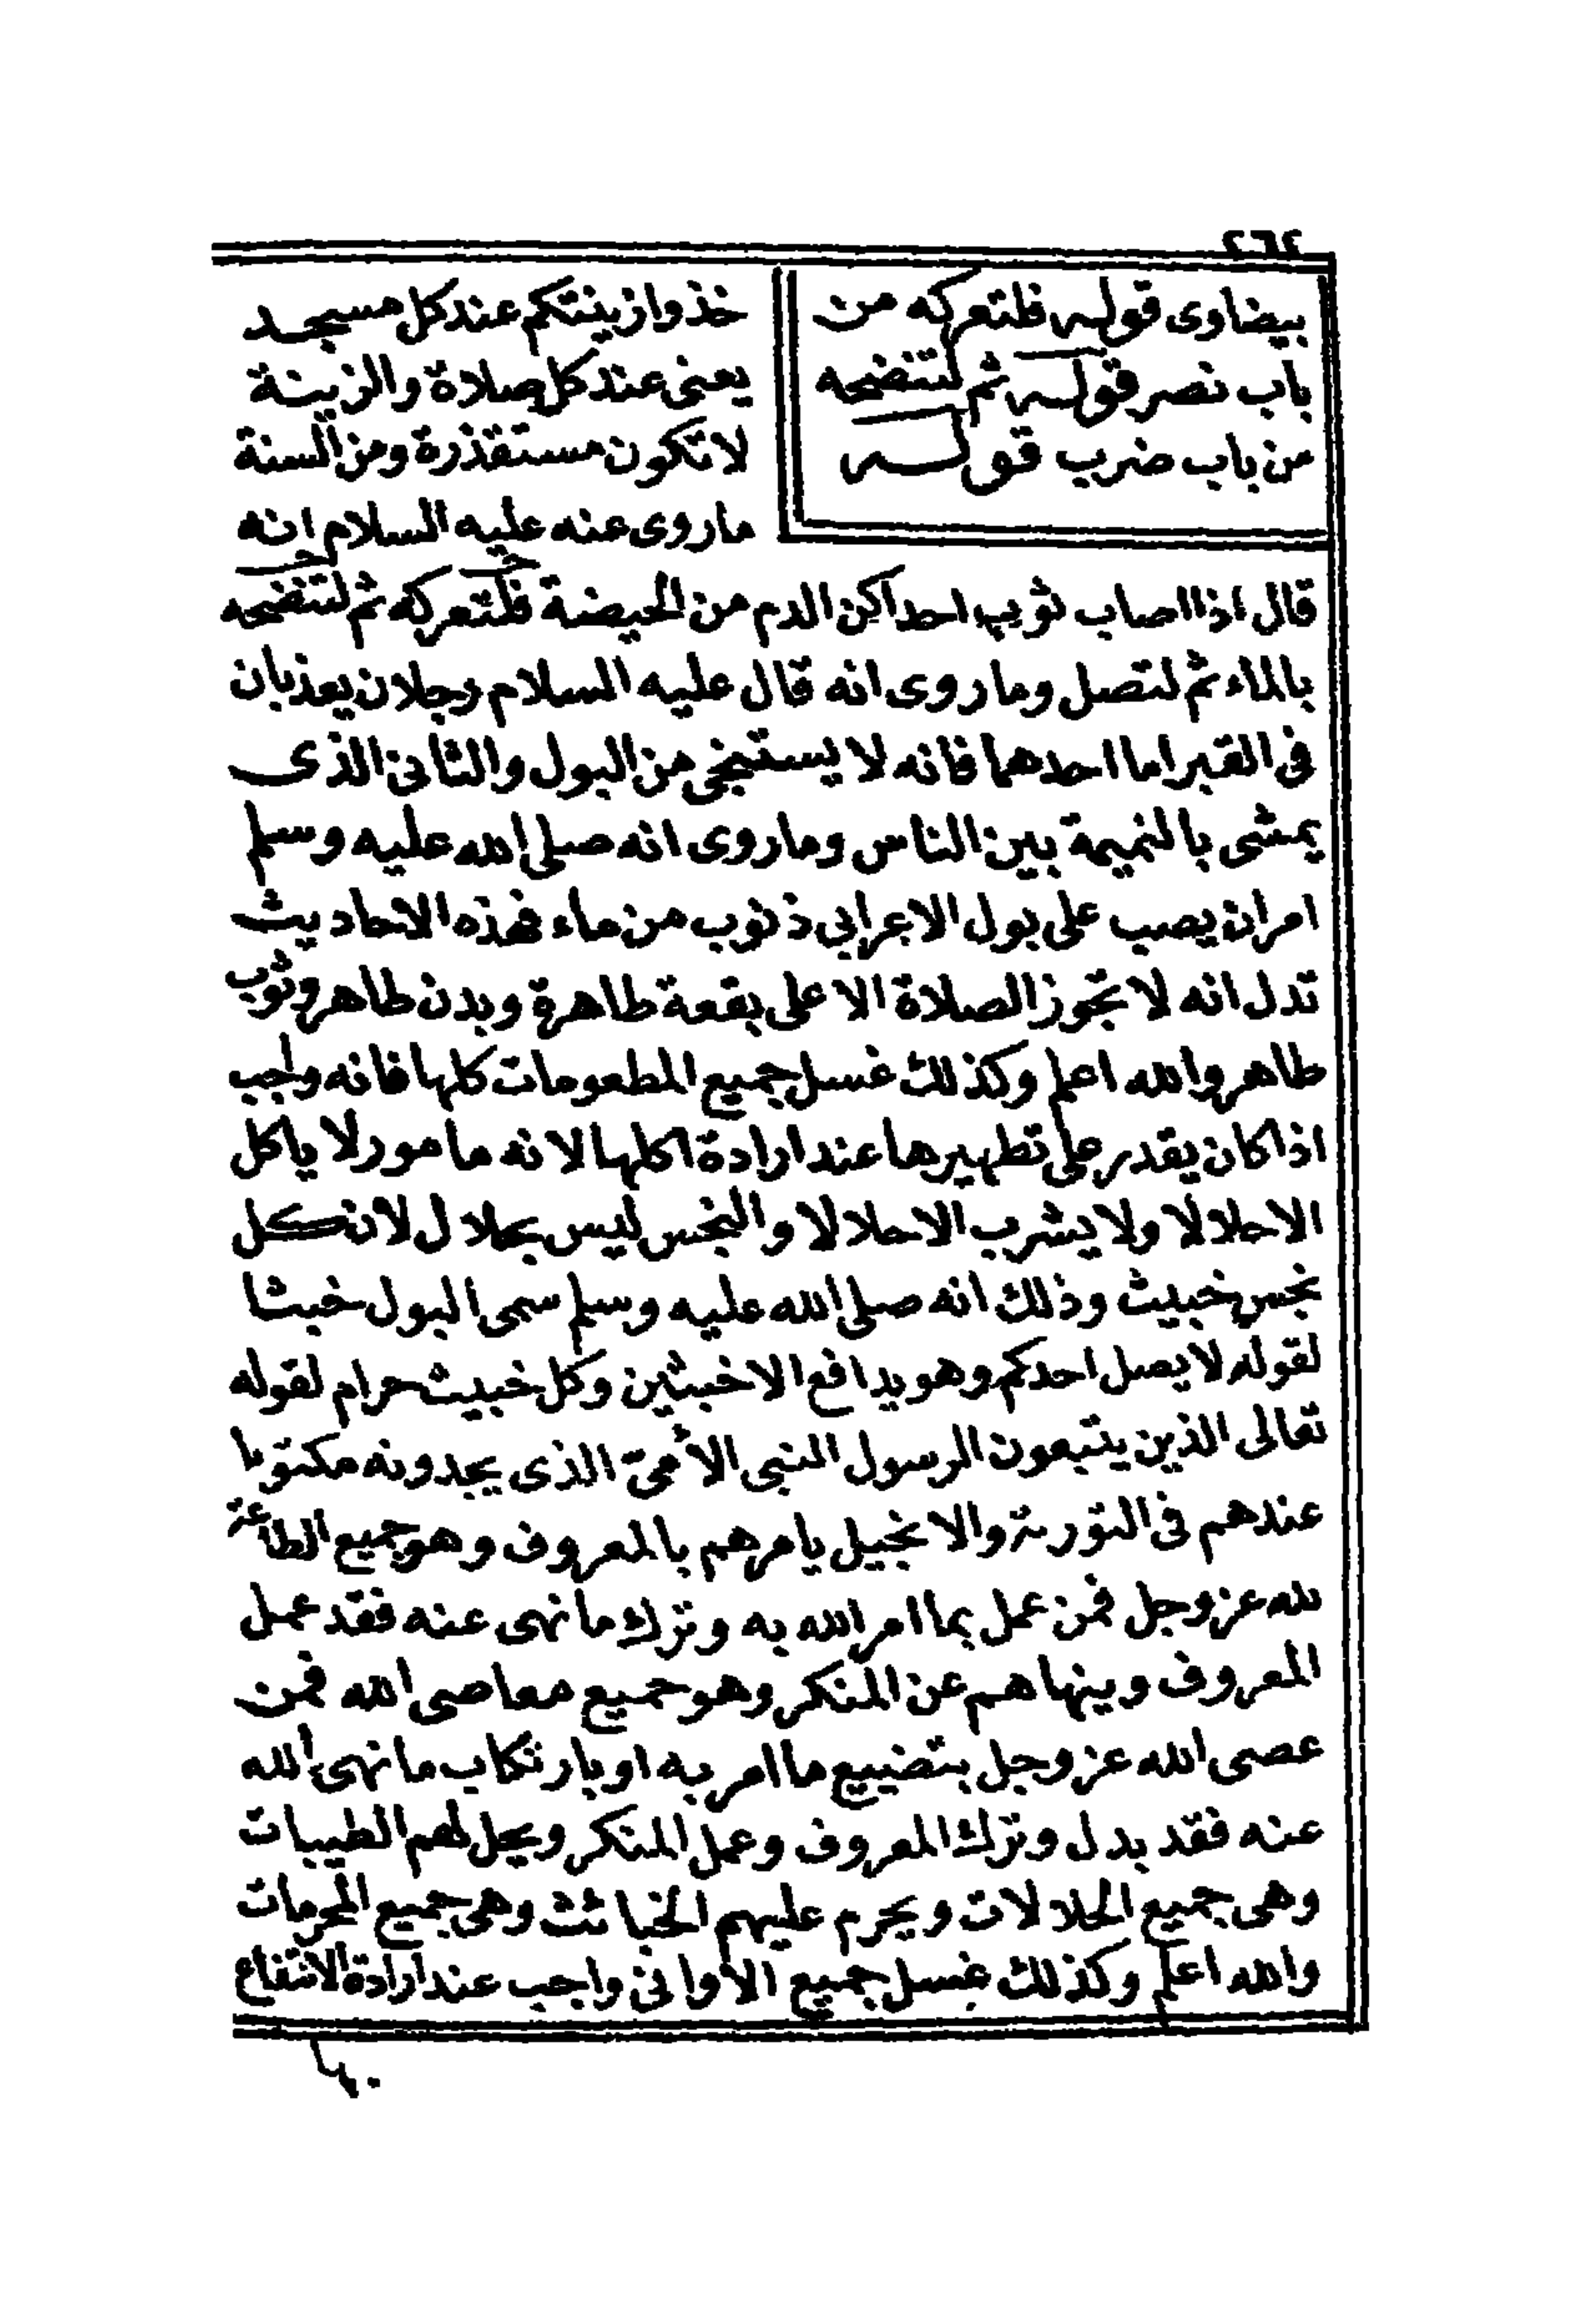 ٢٦٤
بيضاوى قوله فلتعركه من
باب نصر قوله ثم لتنضحه
من باب ضرب قوله
خذوا زينتكم عند كل مسجد
يعنى عند كل صلاة والزينة
لا تكون مستقذرة ومن السنة
ماروى عنه عليه السلام انه
قال اذا اصاب ثوب احداكن الدم من الحيضة فلتعركه ثم لتنضحه
بالماء ثم لتصل وماروى انه قال عليه السلام رجلان يعذبان
فى القبر اما احدهما فانه لا يستنجى من البول والثانى الذى
يمشى بالنميمة بين الناس وماروى انه صلى الله عليه وسلم
امر ان يصب على بول الاعرابى ذنوب من ماء فهذه الاحاديث
تدل انه لا تجوز الصلاة الا على بقعة طاهرة وبدن طاهر وثوب
طاهر والله اعلم وكذلك غسل جميع المطعومات كلها فانه واجب
اذا كان يقدر على تطهيرها عند ارادة اكلها لانه مامور لا ياكل
الا حلالا ولا يشرب الا حلالا والنجس ليس بحلال لان كل
نجس خبيث وذلك انه صلى الله عليه وسلم سمى البول خبثا
لقوله لا يصل احدكم وهو يدافع الاخبثين وكل خبيث حرام لقوله
تعالى الذين يتبعون الرسول النبى الأمىّ الذى يجدونه مكتوبا
عندهم فى التورية والانجيل يامرهم بالمعروف وهو جميع الطاعة
لله عز وجل فمن عمل بما امر الله به وترك ما نهى عنه فقد عمل
المعروف وينهاهم عن المنكر وهو جميع معاصى الله فمن
عصى الله عز وجل بتضييع ما امر به او بارتكاب ما نهى الله
عنه فقد بدل وترك المعروف وعمل المنكر ويحل لهم الطيبات
وهى جميع الحلالات ويحرم عليهم الخبائث وهى جميع المحرمات
والله اعلم وكذلك غسل جميع الاوانى واجب عند ارادة الانتفاع
بها